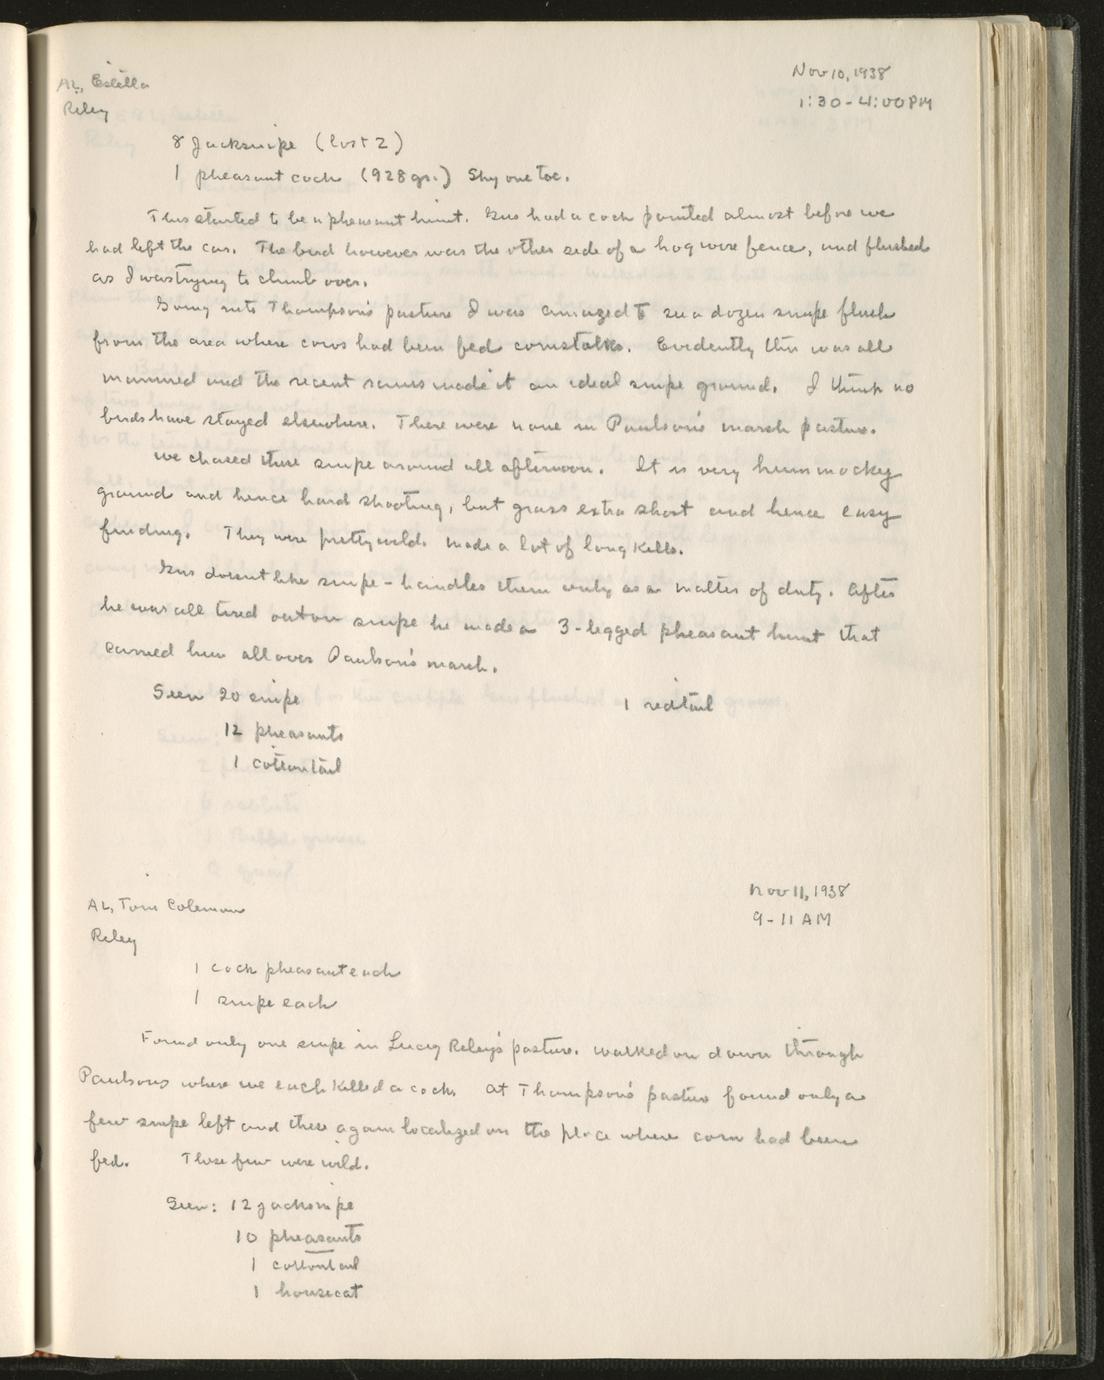 AL, Estella
Riley
Nov 10, 1938
1:30 - 4:00 PM
8 Jacksnipe (lost 2)
1 pheasant cock (928 gr.) Shy one toe.
This started to be a pheasant hunt. Gus had a cock pointed almost before we
had left the car. The bird however was the other side of a hog wire fence, and flushed
as I was trying to climb over.
Going into Thompson's pasture I was amazed to see a dozen snipe flush
from the area where cows had been fed cornstalks. Evidently this was all
manured and the recent rains made it an ideal snipe ground. I think no
birds have stayed elsewhere. There were none in Paulson's marsh pasture.
We chased these snipe around all afternoon. It is very hummocky
ground and hence hard shooting, but grass extra short and hence easy
finding. They were pretty wild. Made a lot of long kills.
Gus doesnt like snipe - handles them only as a matter of duty. After
he was all tired out on snipe he made a 3-legged pheasant hunt that
carried him all over Paulson's marsh.
Seen 20 snipe
1 redtail
12 pheasants
1 cottontail
AL, Tom Coleman
Riley
Nov 11, 1938
9 - 11 AM
1 cock pheasant each
1 snipe each
Found only one snipe in Lucy Riley's pasture. Walked on down through
Paulsons where we each killed a cock. At Thompson's pasture found only a
few snipe left and these again localized on the place where corn had been
fed. These few were wild.
Seen: 12 jacksnipe
10 pheasants
1 cottontail
1 housecat